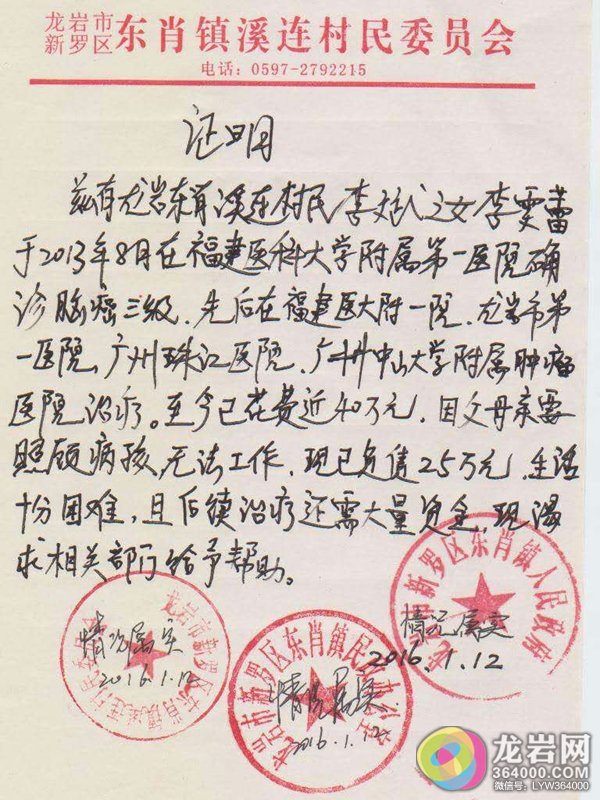 龙岩市
新罗区 东肖镇溪连村民委员会
电话：0597-2792215
证明
兹有龙岩东肖溪连村民李斌之女李雯蕾
于2013年8月在福建医科大学附属第一医院确
诊脑癌三级，先后在福建医大附一院、龙岩市第
一医院、广州珠江医院、广州中山大学附属肿瘤
医院治疗。至今已花费近40万元，因父母亲要
照顾病孩，无法工作，现已负债25万元，生活
十分困难，且后续治疗还需大量资金，现渴
求相关部门给予帮助。
情况属实
2016.1.12
情况属实
2016.1.12
情况属实
2016.1.12
新罗区东肖镇人民政府
龙岩市新罗区东肖镇民政办公室
龙岩市新罗区东肖镇溪连村民委员会
龙岩网
364000.COM
微信号：LYW364000